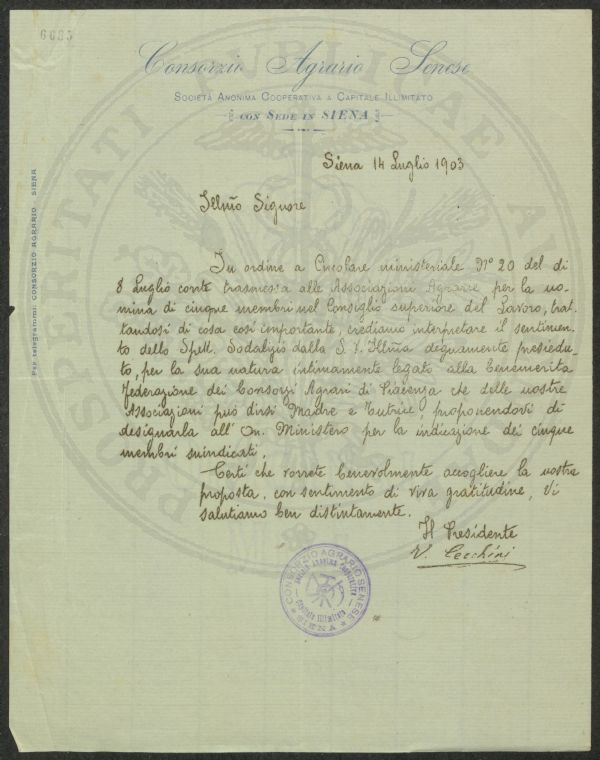 6685
Consorzio Agrario Senese
Società Anonima Cooperativa a Capitale Illimitato
con Sede in SIENA
Per telegrammi CONSORZIO AGRARIO SIENA
Siena 14 Luglio 1903
Illmo Signore
In ordine a Circolare ministeriale No 20 del di
8 Luglio corrte trasmessa alle Associazioni Agrarie per la no-
mina di cinque membri nel Consiglio superiore del Lavoro, trat-
tandosi di cosa così importante, crediamo interpretare il sentimen-
to dello Spett. Sodalizio dalla S. V. Illma degnamente presiedu-
to, per la sua natura intimamente legato alla benemerita
Federazione dei Consorzi Agrari di Piacenza che delle nostre
Associazioni può dirsi Madre e Tutrice, proponendovi di
designarla all' On. Ministero per la indicazione dei cinque
membri suindicati.
Certi che vorrete benevolmente accogliere la nostra
proposta, con sentimento di viva gratitudine, Vi
salutiamo ben distintamente.
Il Presidente
V. Cecchini
CONSORZIO AGRARIO SENESE
Società Anonima Cooperativa
Capitale Illimitato
SIENA